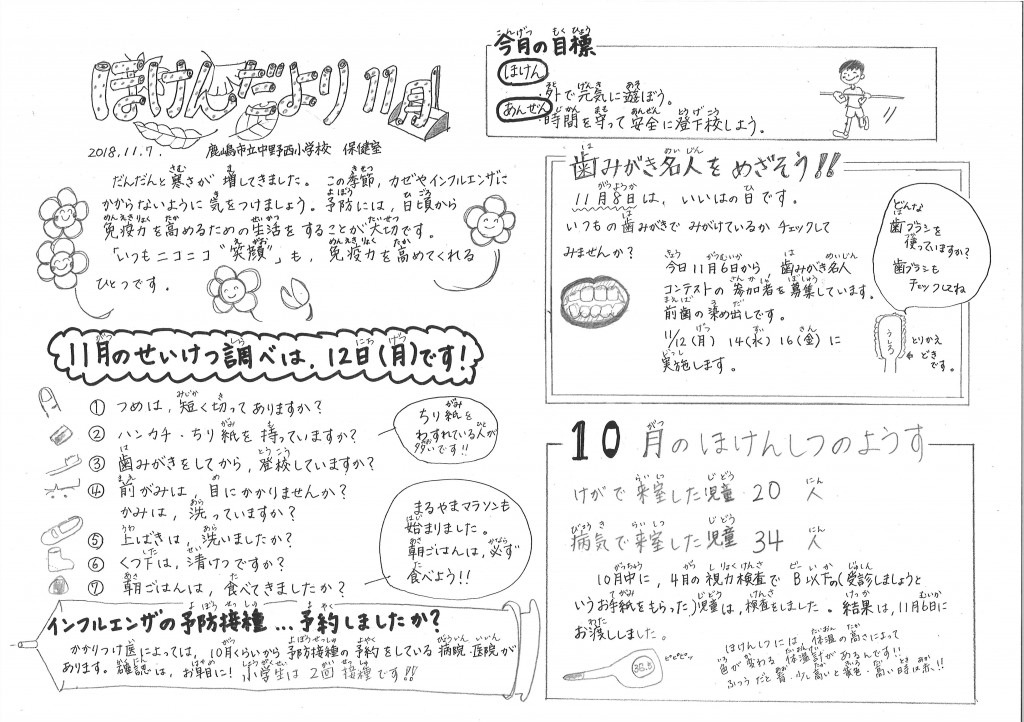 ほけんだより 11月
2018.11.7. 鹿嶋市立中野西小学校 保健室
だんだんと寒さが 増してきました。この季節,カゼやインフルエンザに
かからないように 気をつけましょう。予防には,日頃から
免疫力を高めるための生活をすることが大切です。
「いつもニコニコ“笑顔”」も,免疫力を高めてくれる
ひとつです。
11月のせいけつ調べは,12日(月)です!
① つめは,短く切ってありますか?
② ハンカチ・ちり紙を持っていますか?
③ 歯みがきをしてから,登校していますか?
④ 前がみは,目にかかりませんか?
かみは,洗っていますか?
⑤ 上ばきは,洗いましたか?
⑥ くつ下は,清けつですか?
⑦ 朝ごはんは,食べてきましたか?
ちり紙を
わすれている人が
多いです!!
まるやまマラソンも
始まりました。
朝ごはんは,必ず
食べよう!!
インフルエンザの予防接種…予約しましたか?
かかりつけ医によっては,10月くらいから予防接種の予約をしている病院・医院が
あります。確認は,お早目に!小学生は2回接種です!!
今月の目標
ほけん
外で元気に遊ぼう。
あんぜん
時間を守って安全に登下校しよう。
歯みがき名人をめざそう!!
11月8日は,いいはの日です。
いつもの歯みがきでみがけているかチェックして
みませんか?
今日11月6日から,歯みがき名人
コンテストの参加者を募集しています。
前歯の染め出しです。
11/12(月) 14(水) 16(金)に
実施します。
どんな
歯ブラシを
使っていますか?
歯ブラシも
チェックしてね
うしろ
とりかえ
どき
です。
10月のほけんしつのようす
けがで来室した児童 20 人
病気で来室した児童 34 人
10月中に,4月の視力検査でB以下の(受診しましょうと
いうお手紙をもらった)児童は,検査をしました。結果は,11月6日に
お渡ししました。
ピピピッ
ほけんしつには,体温の高さによって
色が変わる,体温計があるんです!!
ふつうだと青・少し高いと黄色・高い時は赤!!